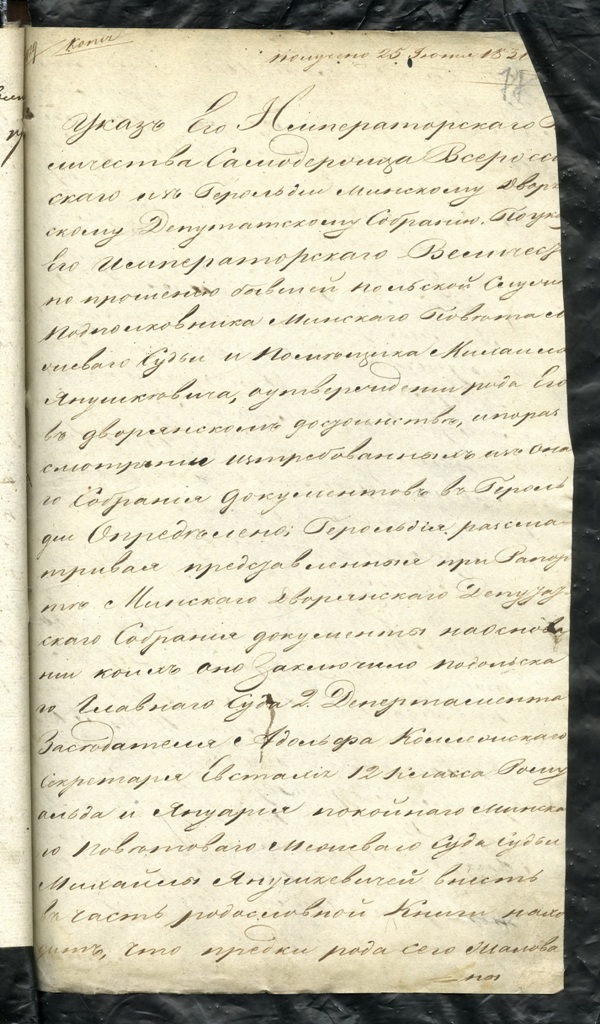 Копія
получено 25 Іюня 1831
Указъ Его Императорскаго
личества Самодержца Всеросс
скаго изъ Герольдіи Минскому Двор
скому Депутатскому Собранію. По ука
Его Императорскаго Величес
по прошенію бывшей польской Служ
Подполковника Минскаго Повета М
жеваго Судьи и Помѣщика Михаила
Янушкевича, о утвержденіи рода Его
въ дворянскомъ достоинствѣ, и по раз
смотреніи изтребованныхъ изъ она
го Собранія Документовъ въ Героль
діи Определено: Герольдія, разсма
тривая представленныя при Рапор
тѣ Минскаго Дворянскаго Депутат
скаго Собранія документы на основа
ніи коихъ оно Заключило Подольска
го Главнаго Суда 2. Департамента
Заседателя Адольфа Коллежскаго
Секретаря Евстафія 12 Класса Рому
альда и Януарія покойнаго Минска
го Поветоваго Межеваго Суда Судьи
Михайлы Янушкевичей внесть
въ часть родословной Книги нахо
дитъ, что предки рода сего жалова
ны